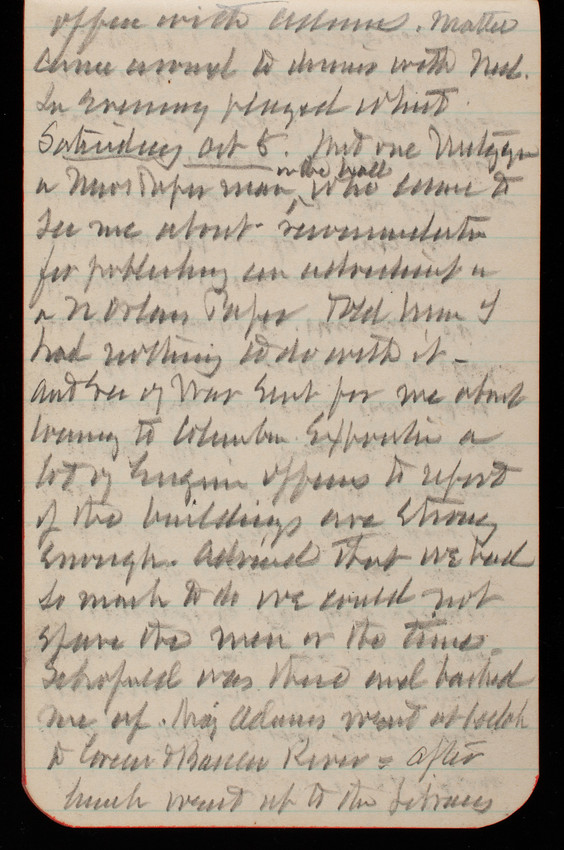 office with Adams. Mattie
came around to dinner with Ned.
In Evening played Whist.
Saturday Oct 8. Met one
in the hall
a News Paper man, who came to
see me about recommendation
for publishing an advertisement in
a N Orleans Paper. Told him I
had nothing to do with it -
and Sec of War sent for me about
to Columbian Exposition a
lot of Engineer officers to report
if the buildings are strong
enough. Advised that we had
so much to do we could not
spare the men or the time.
Schofield was there and backed
me up. Maj Adams went at
to Green & Barren River = after
lunch went up to the